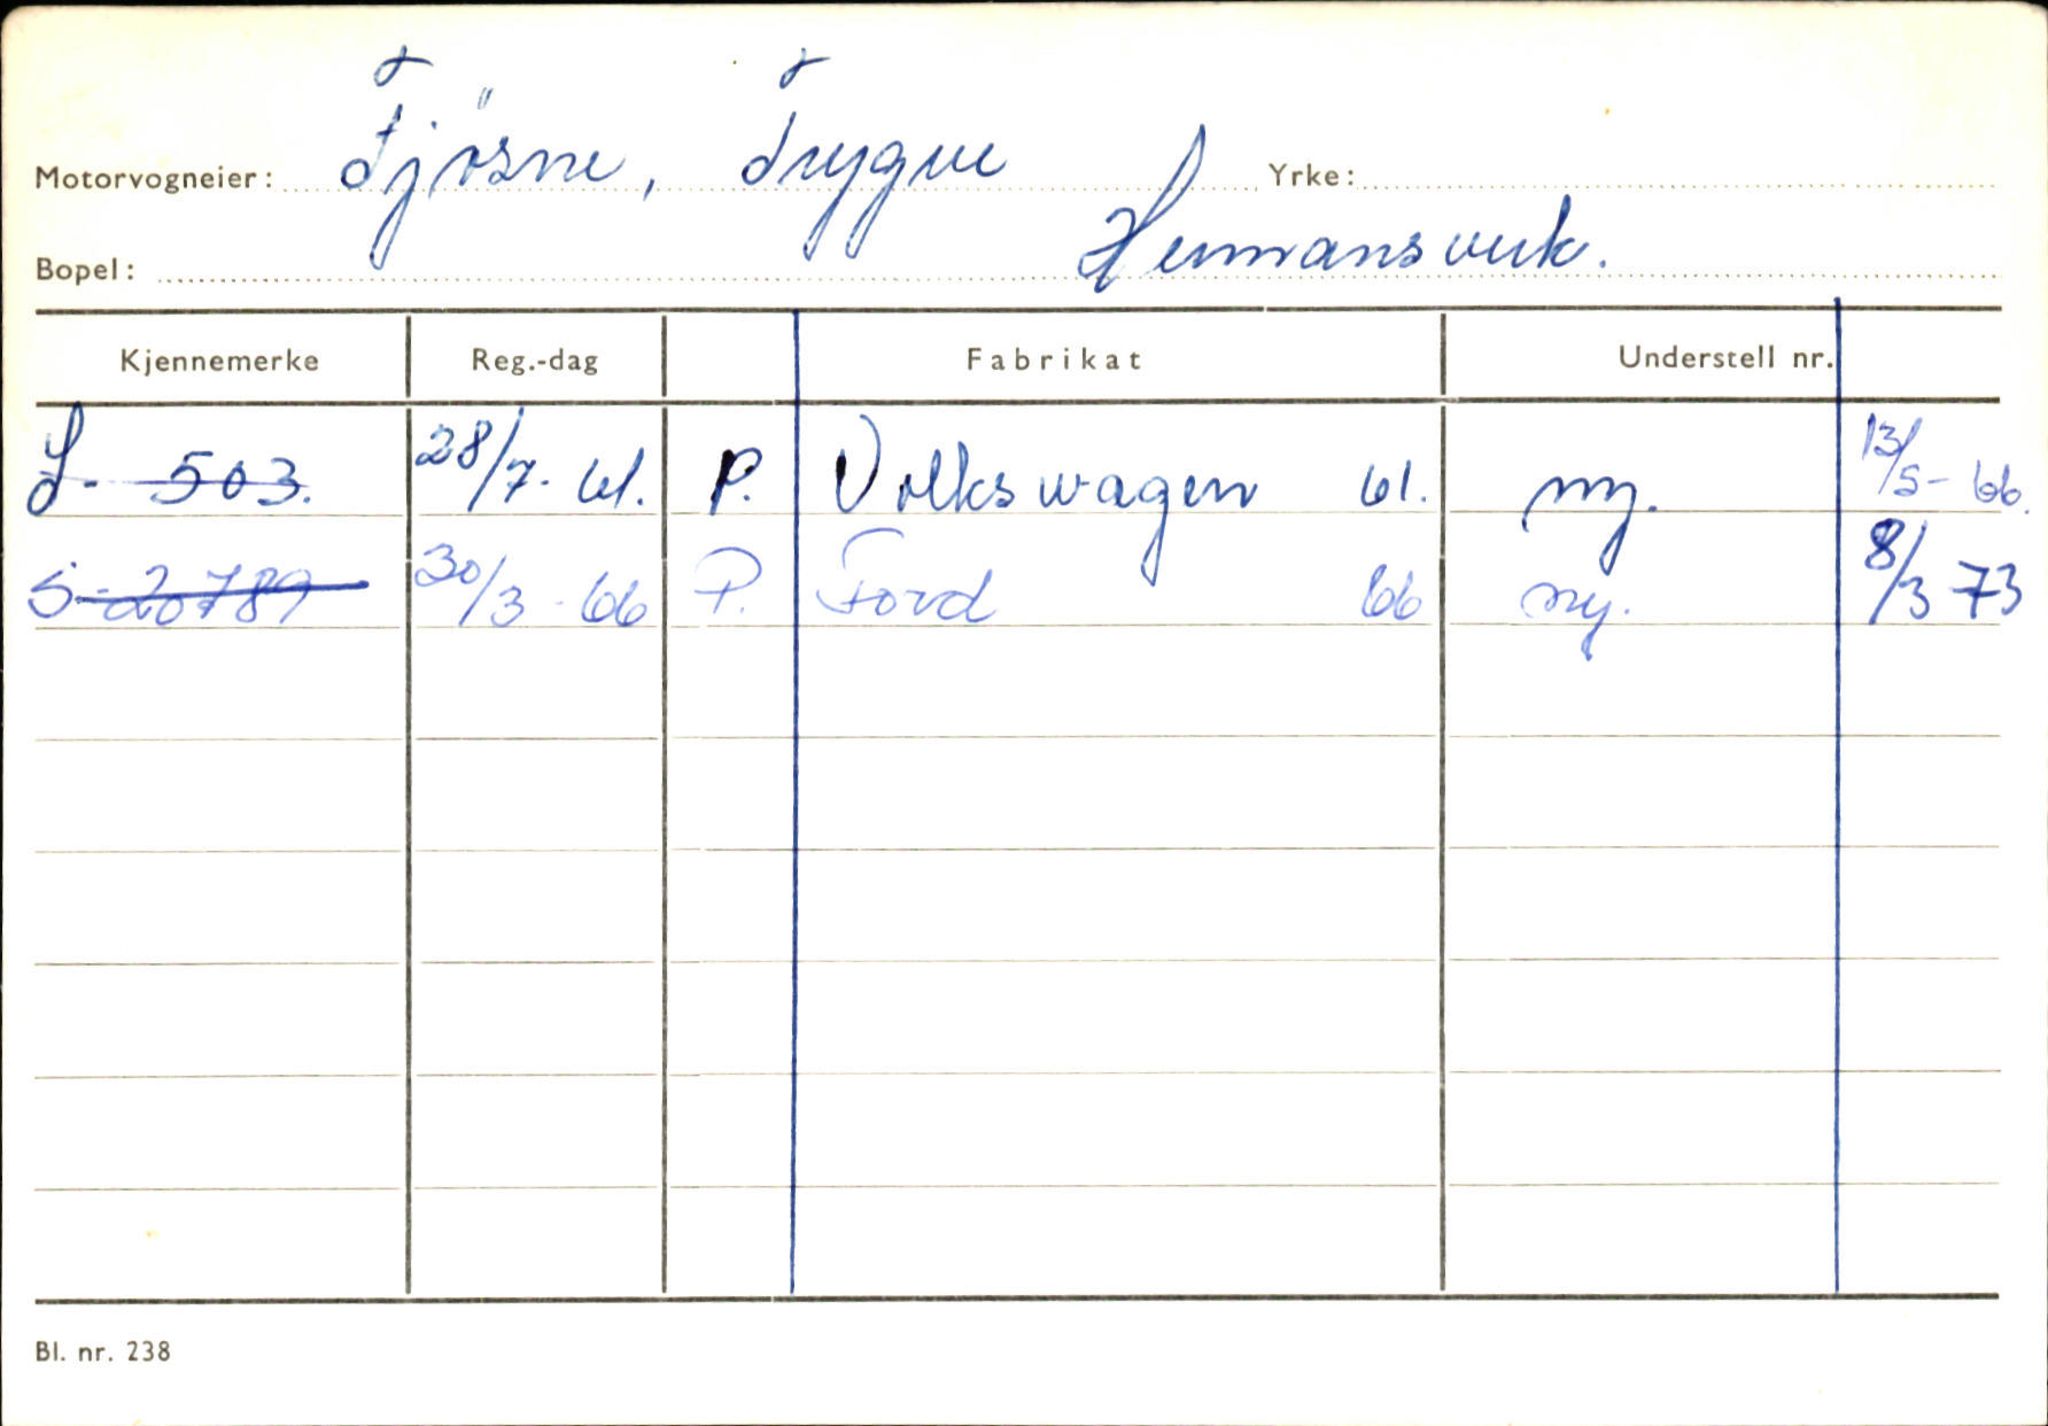 Motorvogneier: Fjösne, Trygve Yrke:
Bopel: Hermansverk.
Kjennemerke Reg.-dag Fabrikat Understell nr.
S- 503. 28/7- 61. P. Volkswagen 61. ny. 13/5- 66.
S-20789 30/3-66 P. Ford 66 ny. 8/3 73
Bl. nr. 238